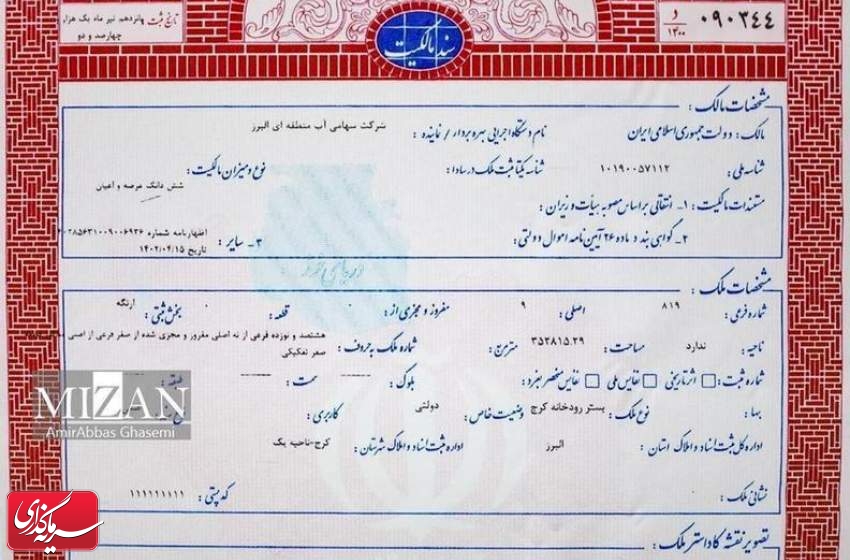 تاریخ ثبت پانزدهم تیر ماه یک هزار
چهارصد و دو
سند مالکیت
و
۱۴۰۰
۰۹۰۳۴۴
مشخصات مالک :
مالک : دولت جمهوری اسلامی ایران نام دستگاه اجرایی بهره بردار / نماینده : شرکت سهامی آب منطقه ای البرز
شناسه ملی : ۱۰۱۹۰۰۵۷۱۱۲ شناسه یکتا ثبت ملک در سادا : نوع و میزان مالکیت : شش دانگ عرصه و اعیان
مستندات مالکیت : ۱- انتقالی بر اساس مصوبه هیأت وزیران :
۲- گواهی بند د ماده ۲۶ آیین نامه اموال دولتی : ۳- سایر : اظهارنامه شماره
تاریخ ۱۴۰۲/۰۴/۱۵
مشخصات ملک :
شماره فرعی : ۸۱۹ اصلی : ۹ مفروز و مجزی از : قطعه : بخش ثبتی : ارنگه
ناحیه : ندارد مساحت : ۳۵۳۸۱۵.۲۹ مترمربع : شماره ملک به حروف : هشتصد و نوزده فرعی از نه اصلی مفروز و مجزی شده از صفر فرعی از اصلی
صفر تفکیکی
شماره ثبت : اثر تاریخی نفایس ملی نفایس منحصر بفرد : بلوک : سمت : طبقه :
بها : نوع ملک : بستر رودخانه کرج وضعیت خاص : دولتی کاربری :
اداره کل ثبت اسناد و املاک استان : البرز اداره ثبت اسناد و املاک شهرستان : کرج-ناحیه یک
نشانی ملک : کد پستی : ۱۱۱۱۱۱۱۱۱۱
تصویر نقشه کاداستر ملک :
MIZAN
AmirAbbas Ghasemi
سرمایه گذاری